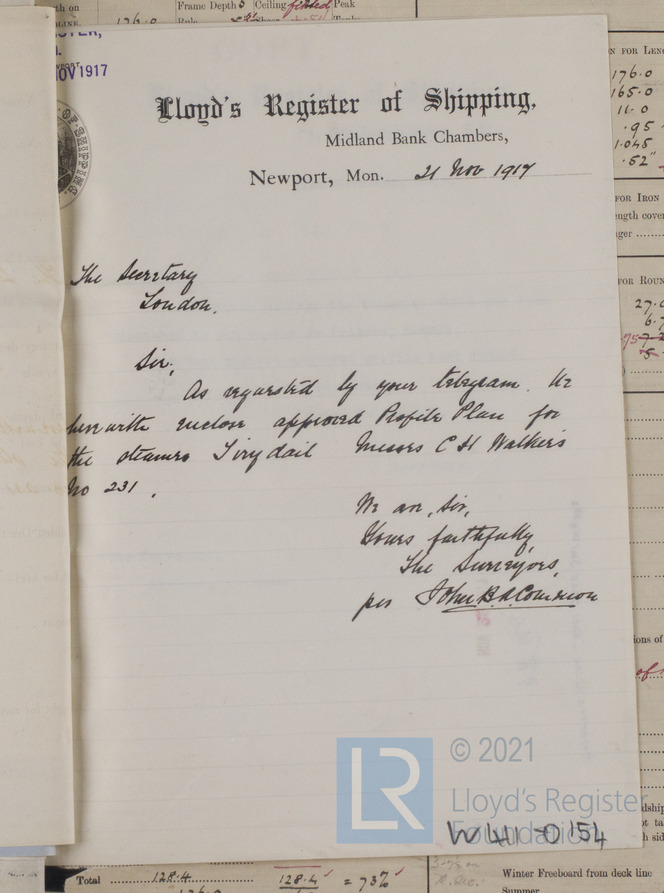 th on
Frame Depth
Ceiling fitted
Peak
176.0
NOV 1917
Lloyd's Register of Shipping,
Midland Bank Chambers,
Newport, Mon. 21 Nov 1917
The Secretary
London.
Sir,
As requested by your telegram. We
herewith enclose approved Profile Plan for
the steamer Tirydail Messrs C H Walker's
No 231.
We are, Sir,
Yours faithfully,
The Surveyors,
per John B.
N FOR LENG
176.0
165.0
11.0
.95
1.045
.52"
FOR IRON
ength cove
FOR ROUN
27.0
6.7
ions of
© 2021
LR
Lloyd's Register
Foundation
W441-0154
Total 128.4
128.4 = 73%
Winter Freeboard from deck line
Summer